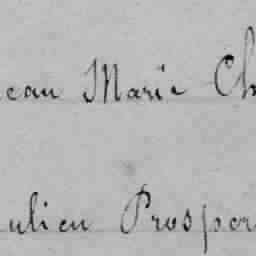 ean Marie Ch
ulien Prosper